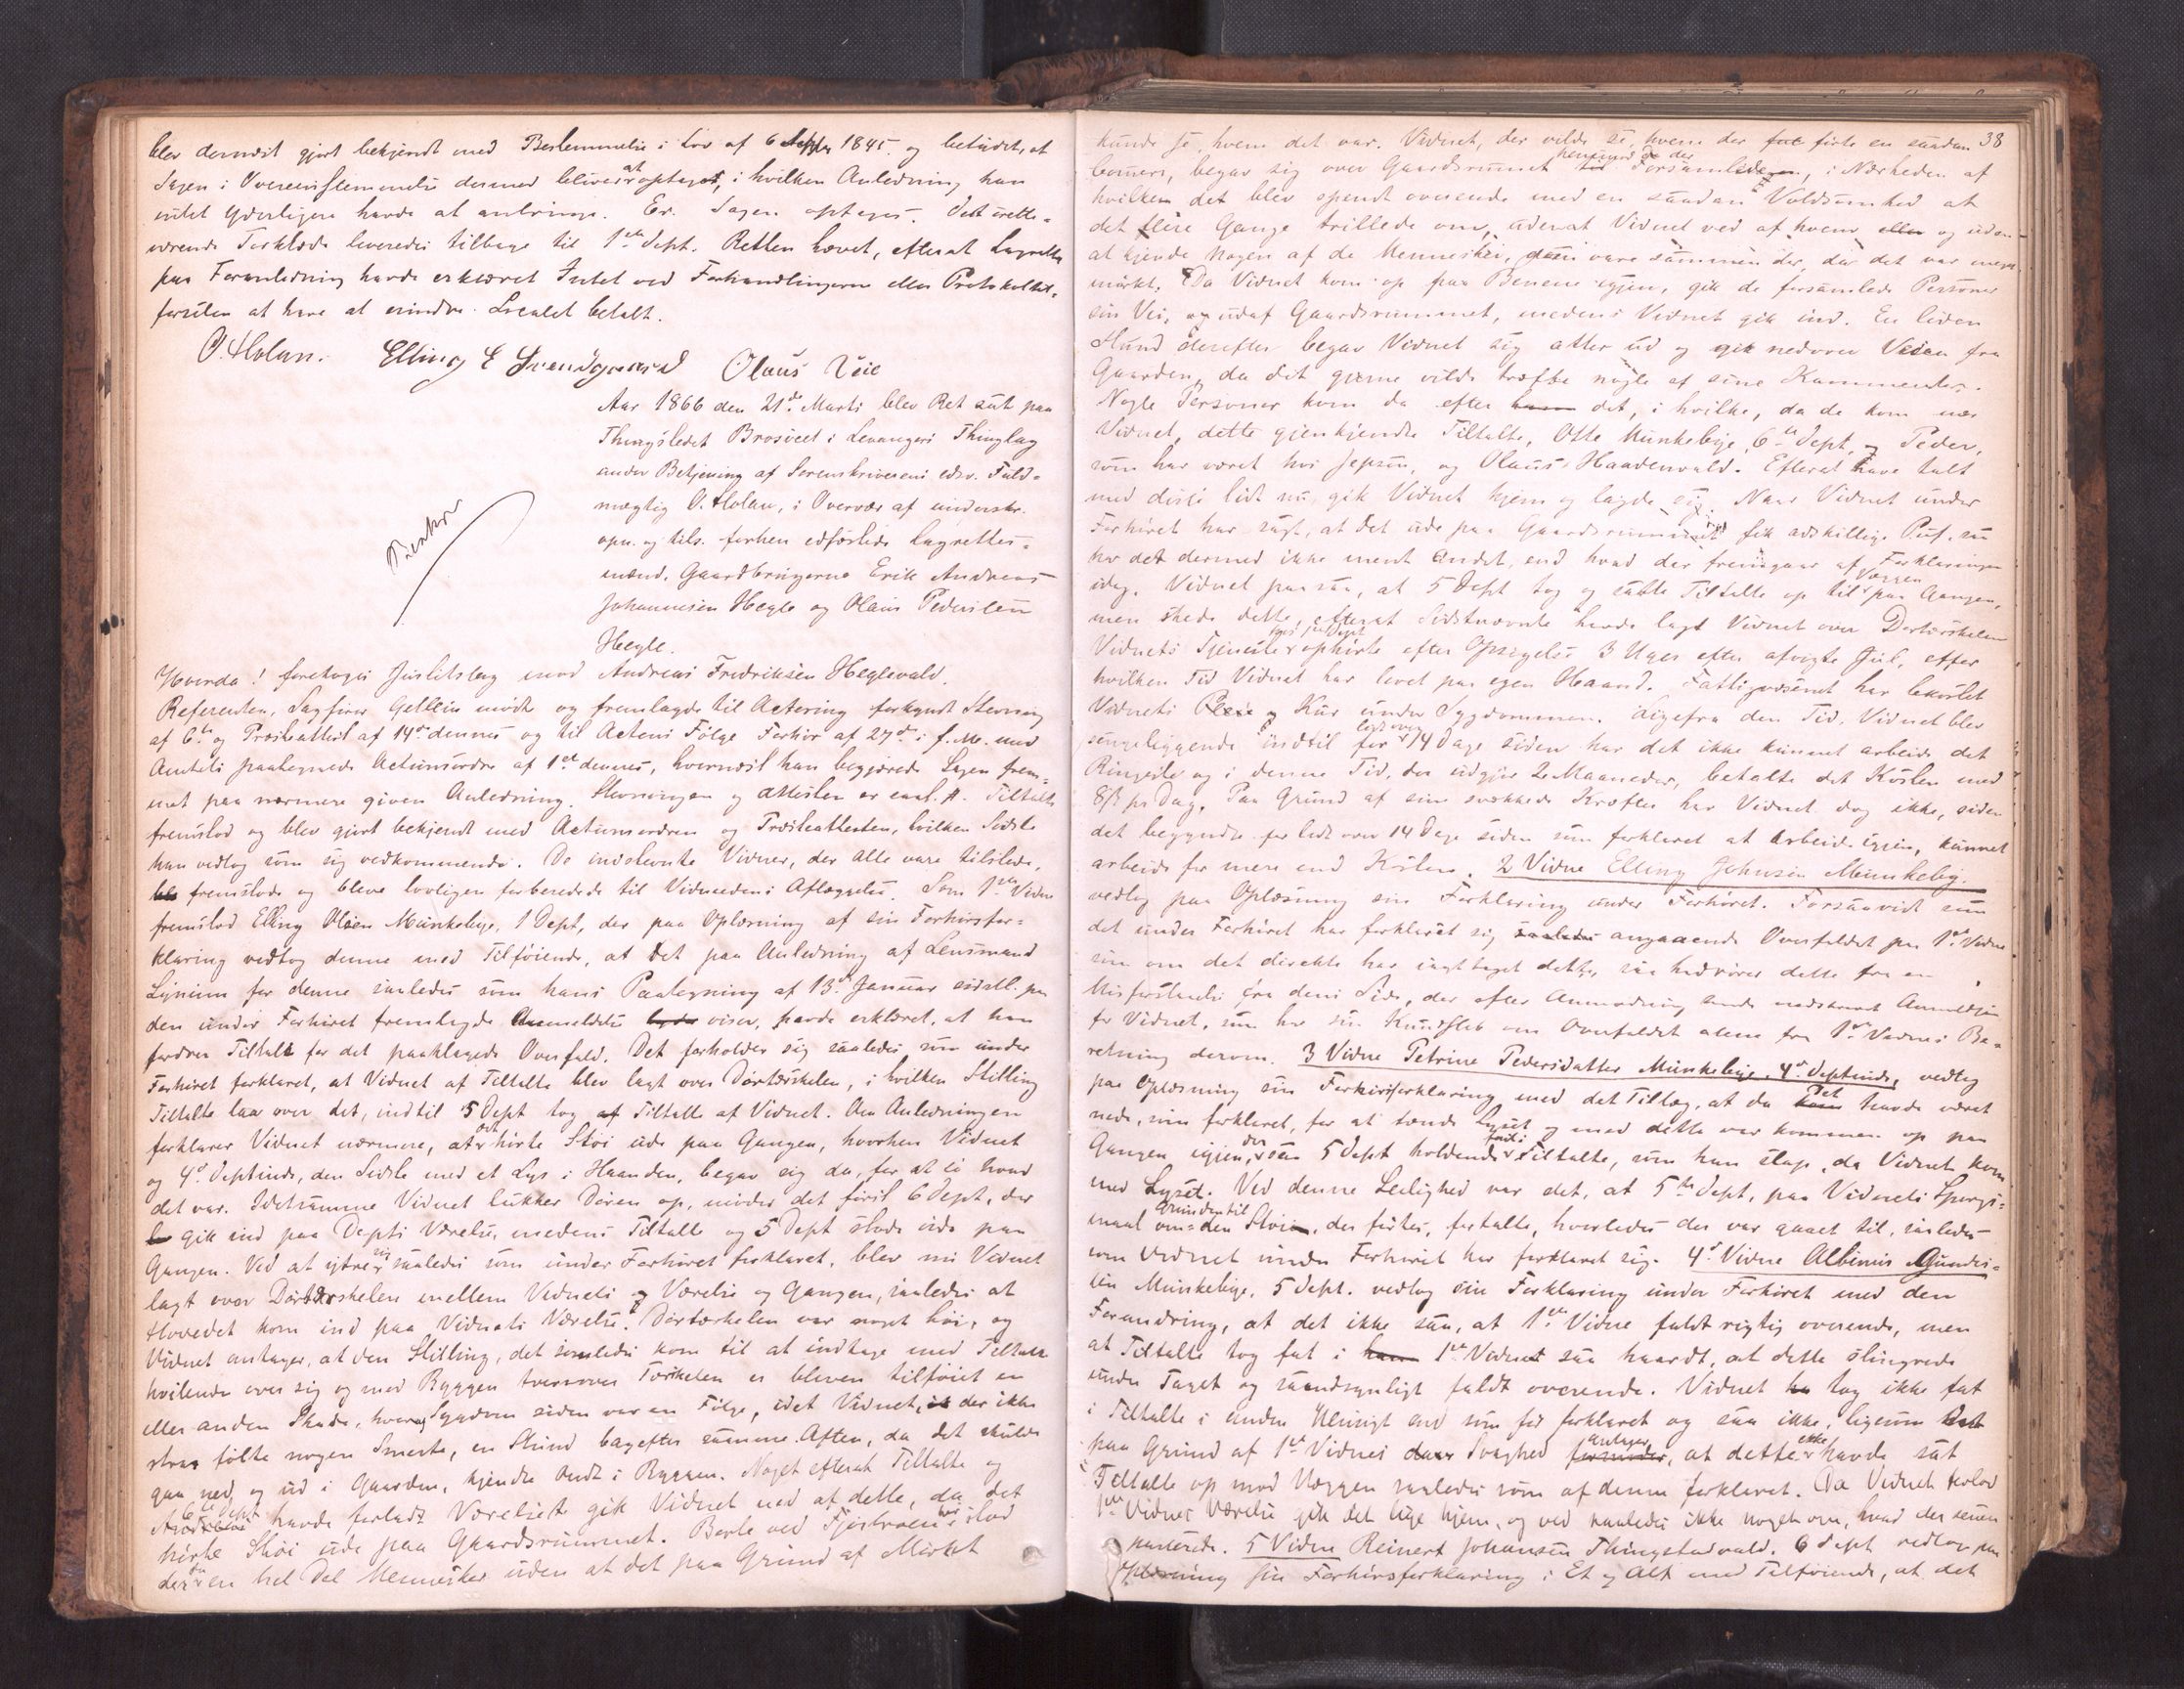 blev dernæst gjort bekjendt med Bestemmelse i Lov af 6 Septbr 1845 og betydet, at
Sagen i Overeensstemmelse dermed bliver at optages, i hvilken Anledning han
intet yderligere havde at anbringe. Er. Sagen optages. Det irette-
værende Tørklæde leveredes tilbage til 1ste Dept. Retten hævet, efterat Lagrettet
paa Foranledning havde erklæret Intet ved Forhandlingerne eller Protokollat-
førselen at have at erindre. Localet betalt.
O. Holan. Elling E Svendgaard Olaus Veie
Aar 1866 den 21de Marts blev Ret sat paa
Thingstedet Brusveet i Levangers Thinglag
under Betjening af Sorenskriverens edsv. Fuld-
mægtig O. Holan, i Overvær af underskr.
opn. og tils. forhen edfæstede Lagrettes-
mænd, Gaardbrugerne Erik Andreas
Johannesen Hegle og Olaus Pedersen
Hegle.
Hvorda! foretoges Justitssag imod Andreas Fredriksen Heglevald.
Referenten, Sagfører Gellein mødte og fremlagde til Actering forkyndt Stevning
af 6te og Præsteattest af 14de dennes og til Actens Følge Forhør af 27de i f. M. med
Amtets paategnede Actionsordre af 1ste dennes, hvornæst han begjærede Sagen frem-
met paa nærmere given Anledning. Stevningen og Attesten er saal. A. Tiltalte
fremstod og blev gjort bekjendt med Actionsordren og Præsteattesten, hvilken Sidste
han vedtog som sig vedkommende. De indstevnte Vidner, der alle vare tilstede,
fremstode og bleve lovligen forberedede til Vidneedens Aflæggelse. Som 1ste Vidne
fremstod Elling Olsen Munkebye, 1 Dept, der paa Oplæsning af sin Forhørsfor-
klaring vedtog denne med Tilføiende, at det paa Anledning af Lensmand
for denne saaledes som hans Paategning af 13de Januar sidstl. paa
den under Forhøret fremlagde Anmeldelse viser, havde erklæret, at han
fordrer Tiltalt for det paaklagede Overfald. Det forholder sig saaledes som under
Forhøret forklaret, at Vidnet af Tiltalte blev lagt over Dørtærskelen, i hvilken Stilling
Tiltalte laa over det, indtil 5 Dept tog Tiltalte af Vidnet. Om Anledningen
forklarer Vidnet nærmere, at det hørte Støi ude paa Gangen, hvorhen Vidnet
og 4de Deptinde, den Sidste med et Lys i Haanden, begav sig da, for at se hvad
det var. Idetsamme Vidnet lukker Døren op, møder det først 6 Dept, der
gik ind paa Depts Værelse, medens Tiltalte og 5 Dept stode ude paa
Gangen. Ved at ytre sig saaledes som under Forhøret forklaret, blev nu Vidnet
lagt over Dørtærskelen mellem Vidnets Værelse og Gangen, saaledes at
Hovedet kom ind paa Vidnets Værelse. Dørtærskelen var noget høi, og
Vidnet antager, at den Stilling, det saaledes kom til at indtage med Tiltalte
hvilende over sig og med Ryggen tversover Tærskelen er bleven tilføiet en
eller anden Skade, hvoraf Sygdom siden var en Følge, idet Vidnet, der ikke
strax følte nogen Smerte, en Stund bagefter samme Aften, da det skulde
gaa ned og ud i Gaarden, kjendte Ondt i Ryggen. Noget efterat Tiltalte og
6te Dept havde forladt Værelset gik Vidnet ned af dette, da det
hørte Støi ude paa Gaardsrummet. Borte ved Fjøsbroen stod
der da en hel Del Mennesker uden at det paa Grund af Mørket
38
kunde se, hvem det var. Vidnet, der vilde se, hvem der førte en saadan
, begav sig over Gaardsrummet henimod de der Forsamlede, i Nærheden af
hvilken det blev spændt overende med en saadan Voldsomhed at
det flere Gange trillede om, uden at Vidnet ved af hvem og uden
at kjende Nogen af de Mennesker, vare sammen der, da det var meget
mørkt. Da Vidnet kom op paa Benene igjen, gik de forsamlede Personer
sin Vei, og udaf Gaardsrummet, medens Vidnet gik ind. En liden
Stund derefter begav Vidnet sig atter ud og gik nedover Veien fra
Gaarden, da det gjerne vilde træffe nogle af sine Kammerater.
Nogle Personer kom da efter det, i hvilke, da de kom nær
Vidnet, dette gjenkjendte Tiltalte, Otte Munkebye, 6te Dept, og Peder,
som har været hos Jepsen, og Olaus Haadenvald. Efterat have talt
med disse lidt nu gik Vidnet hjem og lagde sig. Naar Vidnet under
Forhøret har sagt, at det ude paa Gaardsrummet fik adskillige Puf, saa
har det dermed ikke meent Andet, end hvad der fremgaar af Forklaringen
idag. Vidnet paasaa, at 5 Dept tog og satte Tiltalte op til Væggen paa Gangen,
men skede dette, efterat Sidstnævnte havde lagt Vidnet over Dørtærskelen
Vidnets Tjeneste ophørte efter Opsigelse 3 Uger efter afvigte Jul, efter
hvilken Tid Vidnet har levet paa egen Haand. Fattigvæsenet har bekostet
Vidnets Pleie og Kur under Sygdommen. Ligefra den Tid, Vidnet blev
sengeliggende indtil for lidt over 14 Dage siden har det ikke kunnet arbeide det
Ringeste og i denne Tid, der udgjør 2 Maaneder, betalte det Kosten med
8 ß pr Dag. Paa Grund af sine svækkede Kræfter har Vidnet dog ikke, siden
det begyndte for lidt over 14 Dage siden som forklaret at arbeide igjen, kunnet
arbeide for mere end Kosten. 2 Vidne Elling Johnsen Munkeby.
vedtog paa Oplæsning sin Forklaring under Forhøret. Forsaavidt som
det under Forhøret har forklaret sig angaaende Overfaldet paa 1ste Vidne
som om det direkte har iagttaget dette, saa hidrører dette fra en
Misforstaaelse fra dens Side, der efter Anmodning
for Vidnet, som har sin Kundskab om Overfaldet alene fra 1ste Vidnes Be-
retning derom. 3 Vidne Petrine Pedersdatter Munkebye, 4de Deptinde, vedtog
paa Oplæsning sin Forhørsforklaring med det Tillæg, at da Det havde været
nede, som forklaret, for at tænde Lyset og med dette var kommen op paa
Gangen igjen, saa 5 Dept holdende fast i Tiltalte, som han slap, da Vidnet kom
med Lyset. Ved denne Leilighed var det, at 5te Dept, paa Vidnets Spørgs-
maal om Grunden til den Støi, der førtes, fortalte, hvorledes det var gaaet til, saaledes
som Vidnet under Forhøret har forklaret sig. 4de Vidne Albinus Gunders-
sen Munkebye, 5 Dept. vedtog sin Forklaring under Forhøret med den
Forandring, at det ikke saa, at 1ste Vidne faldt rigtig overende, men
at Tiltalte tog fat i 1ste Vidnet saa haardt, at dette slingrede
under Taget og sandsynligt faldt overende. Vidnet tog ikke fat
i Tiltalte i anden Hensigt end som før forklaret og saa ikke, ligesom det
paa Grund af 1ste Vidnes Svaghed antager, at dette ikke havde sat
Tiltalte op mod Væggen saaledes som af denne forklaret. Da Vidnet forlod
1ste Vidnes Værelse gik det lige hjem, og ved saaledes ikke noget om, hvad der senere
passerede. 5 Vidne Reinert Johansen Thingstadvald, 6 Dept vedtog paa
Oplæsning sin Forhørsforklaring i Et og Alt med Tilføiende, at det